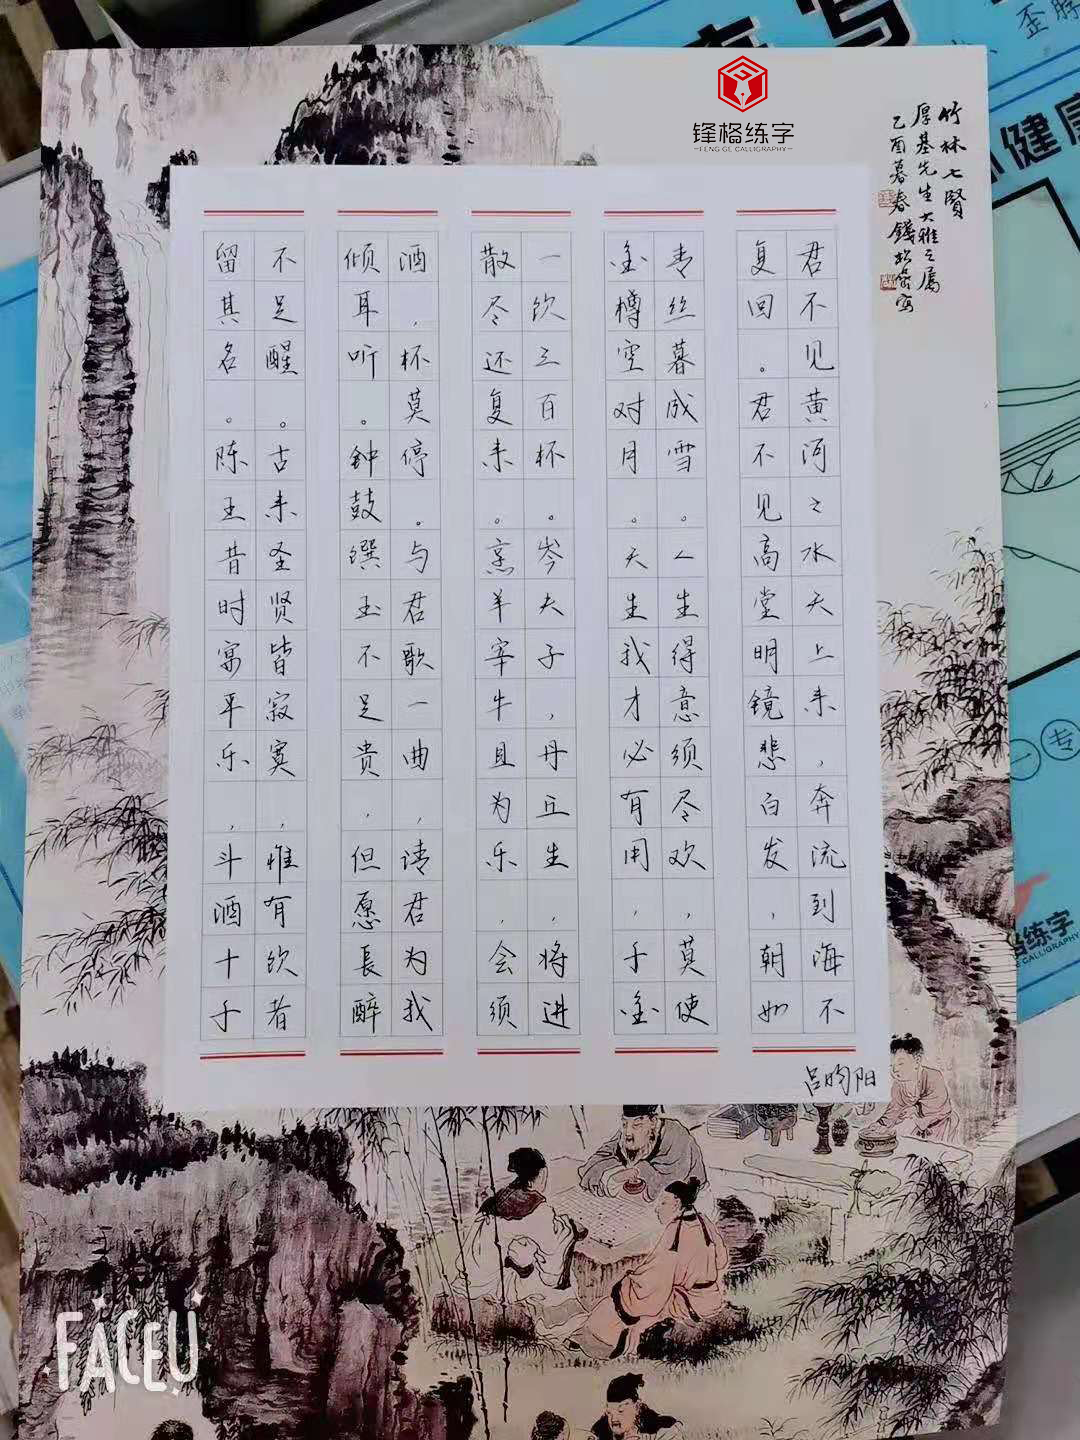 锋格练字
FENG GE CALLIGRAPHY
竹林七贤
厚基先生大雅之属
乙酉暮春钱松嵒写
君不见黄河之水天上来，奔流到海不
复回。君不见高堂明镜悲白发，朝如
青丝暮成雪。人生得意须尽欢，莫使
金樽空对月。天生我才必有用，千金
一饮三百杯。岑夫子，丹丘生，将进
散尽还复来。烹羊宰牛且为乐，会须
酒，杯莫停。与君歌一曲，请君为我
倾耳听。钟鼓馔玉不足贵，但愿長醉
不足醒。古来圣贤皆寂寞，惟有饮者
留其名。陈王昔时宴平乐，斗酒十千
吕昀阳
健康
格练字
CALLIGRAPHY
专
FACEU